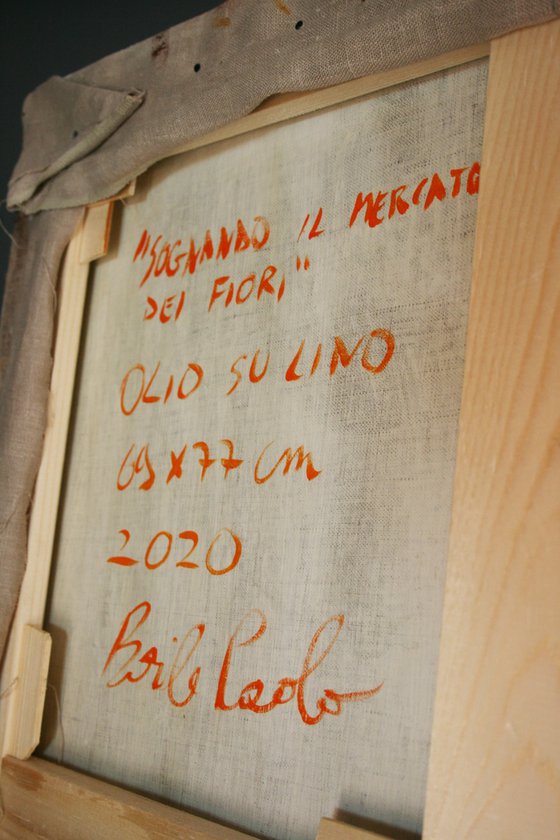 "SOGNANDO IL MERCATO
DEI FIORI"
OLIO SU LINO
69X77 cm
2020
Paolo